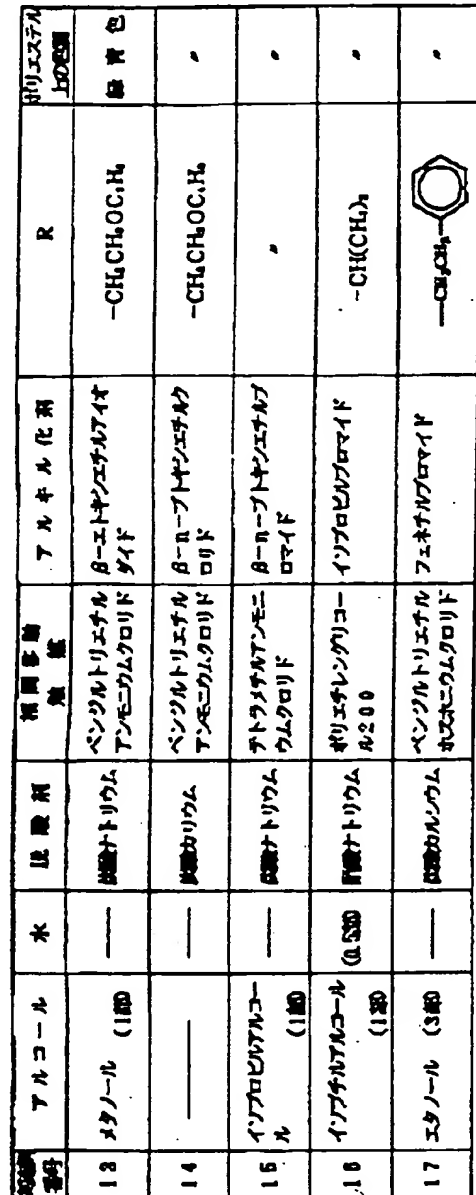 実施例
番号
アルコール
水
脱酸剤
相間移動
触媒
アルキル化剤
R
ポリエステル
上の色調
13
メタノール
(1部)
——
炭酸ナトリウム
ベンジルトリエチル
アンモニウムクロリド
β-エトキシエチルアイオ
ダイド
-CH₂CH₂OC₂H₅
緑青色
14
——
——
炭酸カリウム
ベンジルトリエチル
アンモニウムクロリド
β-n-ブトキシエチルク
ロリド
-CH₂CH₂OC₄H₉
〃
15
イソプロピルアルコー
ル
(1部)
——
炭酸ナトリウム
テトラメチルアンモニ
ウムクロリド
β-n-ブトキシエチルブ
ロマイド
〃
〃
16
イソブチルアルコール
(1部)
酢酸ナトリウム
ポリエチレングリコー
ル200
イソプロピルブロマイド
-CH(CH₃)₂
〃
17
エタノール (3部)
——
炭酸カルシウム
ベンジルトリエチル
ホスホニウムクロリド
フェネチルブロマイド
—CH₂CH₂—
〃